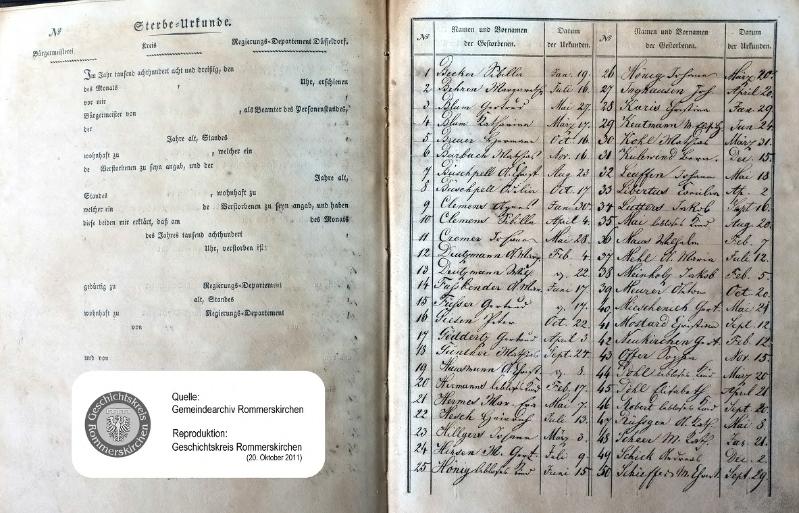 №
Sterbe-Urkunde.
Bürgermeisterei
Kreis
Regierungs-Departement Düsseldorf.
Im Jahr tausend achthundert acht und dreißig, den
des Monats Uhr, erschienen
vor mir
Bürgermeister von , als Beamter des Personenstandes,
der
Jahre alt, Standes
wohnhaft zu , welcher ein
de Verstorbenen zu seyn angab, und der
Jahre alt,
Standes , wohnhaft zu
welcher ein de Verstorbenen zu seyn angab, und haben
diese beiden mir erklärt, daß am des Monats
des Jahres tausend achthundert
Uhr, verstorben ist:
gebürtig zu Regierungs-Departement
alt, Standes
wohnhaft zu Regierungs-Departement
von
und von
Quelle:
Gemeindearchiv Rommerskirchen
Reproduktion:
Geschichtskreis Rommerskirchen
(20. Oktober 2011)
Geschichtskreis
Rommerskirchen
№ Namen und Vornamen der Gestorbenen. Datum der Urkunden. № Namen und Vornamen der Gestorbenen. Datum der Urkunden.
1 Becker Sibilla Jan. 19. 26 König Johann März 20.
2 Behren Juli 16. 27 Inghausen Jos April 20.
3 Blum Gertrud Mai 27. 28 Karis Christina Jan. 29
4 Blum Katharina März 17. 29 Keutmann M. Jun 24.
5 Breuer Hermann Oct. 16 30 Kohl Mathias März 31.
6 Burbach Mathias Nov. 16 31 Dec. 15.
7 Buschpell Aug 23 32 Leuffen Johann Mai 18
8 Buschpell Oct. 17 33 Libertus Ap. 2
9 Clemens Agnes Jan. 30. 34 Lutters Jakob Sept 16.
10 Clemens Sibilla April 4. 35 Mai lebloses Kind Aug 20.
11 Cremer Johann Mai 28. 36 Maus Wilhelm Feb. 7
12 Deutzmann Feb. 4. 37 Mehl Maria Juli 12.
13 Deutzmann 22. 38 Meinholz Jakob Feb. 5.
14 Juni 17 39 Meurer Anton Oct. 20.
15 Füsser Gertrud 17. 40 Mai 21
16 Giesen Peter Oct. 22. 41 Mostard Christina Sept. 12
17 Giddertz Gertrud April 3 42 Neukirchen Gert. Feb. 12
18 Mathias Sept. 27. 43 Offer Nov. 15
19 Hausmann 8. 44 Pohl lebloses Kind März 25
20 Hermanns lebloses Kind Feb. 17. 45 Pohl Elisabeth April 21
21 Hermes Mar. Mai 7. 46 Robert lebloses Kind Sept. 20
22 Hesch Heinrich Juli 13. 47 Mai 5
23 Hilgers Johann März 3. 48 Scheer M. Cath. Jan. 21.
24 Hinsen M. Gert. Juli 9 49 Schick Andreas Dec. 2
25 König lebloses Kind Juni 15 50 Schieffer M. Sept. 29